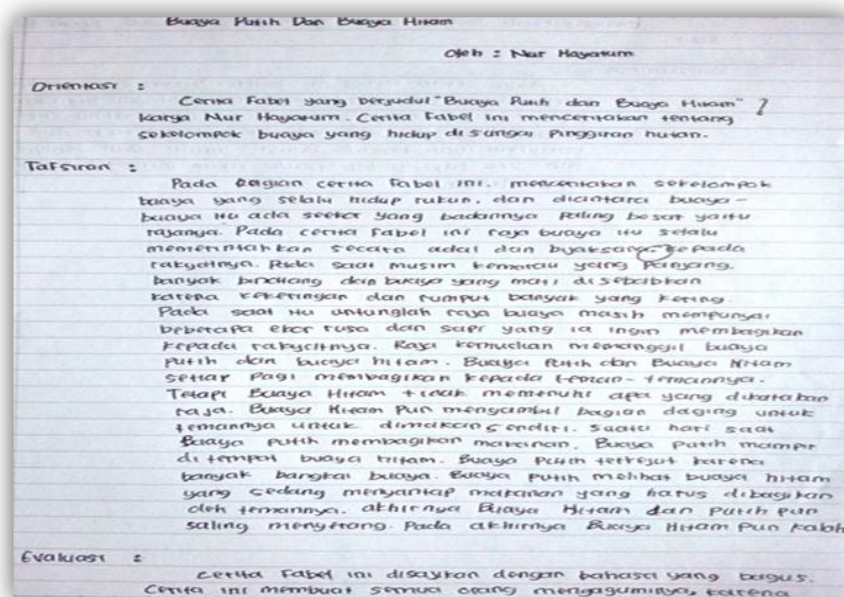 Buaya Putih Dan Buaya Hitam
Oleh : Nur Hayatum
Orientasi :
Cerita Fabel yang berjudul "Buaya Putih dan Buaya Hitam" ?
karya Nur Hayatum. Cerita Fabel ini mencentakan tentang
sekelompok buaya yang hidup di sungai Pinggiran hutan.
Tafsiran :
Pada bagian cerita Fabel ini. mencentakan sekelompok
buaya yang selalu hidup rukun, dan diantara buaya-
buaya itu ada seekor yang badannya Paling besar yaitu
rajanya. Pada cerita Fabel ini raja buaya itu selalu
memerintahkan secara adal dan bijaksana kepada
rakyatnya. Pada saat musim kemarau yang Panyang.
banyak binatang dan buaya yang mati disebabkan
karena kekeringan dan rumput banyak yang kering.
Pada saat itu untunglah raja buaya masih mempunyai
beberapa ekor rusa dan sapi yang ia ingin membagikan
kepada rakyatnya. Raja kemudian memanggil buaya
Putih dan buaya hitam. Buaya Putih dan Buaya Hitam
setiap Pagi membagikan kepada teman-temannya.
Tetapi Buaya Hitam tidak memenuhi apa yang dikatakan
raja. Buaya Hitam Pun mengambil bagian daging untuk
temannya untuk dimakan sendiri. Suatu hari saat
Buaya Putih membagikan makanan. Buaya Putih mampir
di tempat buaya hitam. Buaya Putih terkejut karena
banyak bangkai buaya. Buaya Putih melihat buaya hitam
yang sedang menyantap makanan yang harus dibagikan
oleh temannya. akhirnya Buaya Hitam dan Putih Pun
saling menyerang. Pada akhirnya Buaya Hitam Pun kalah
Evaluasi :
Cerita Fabel ini disajikan dengan bahasa yang bagus.
Cerita ini membuat semua orang mengaguminya, karena